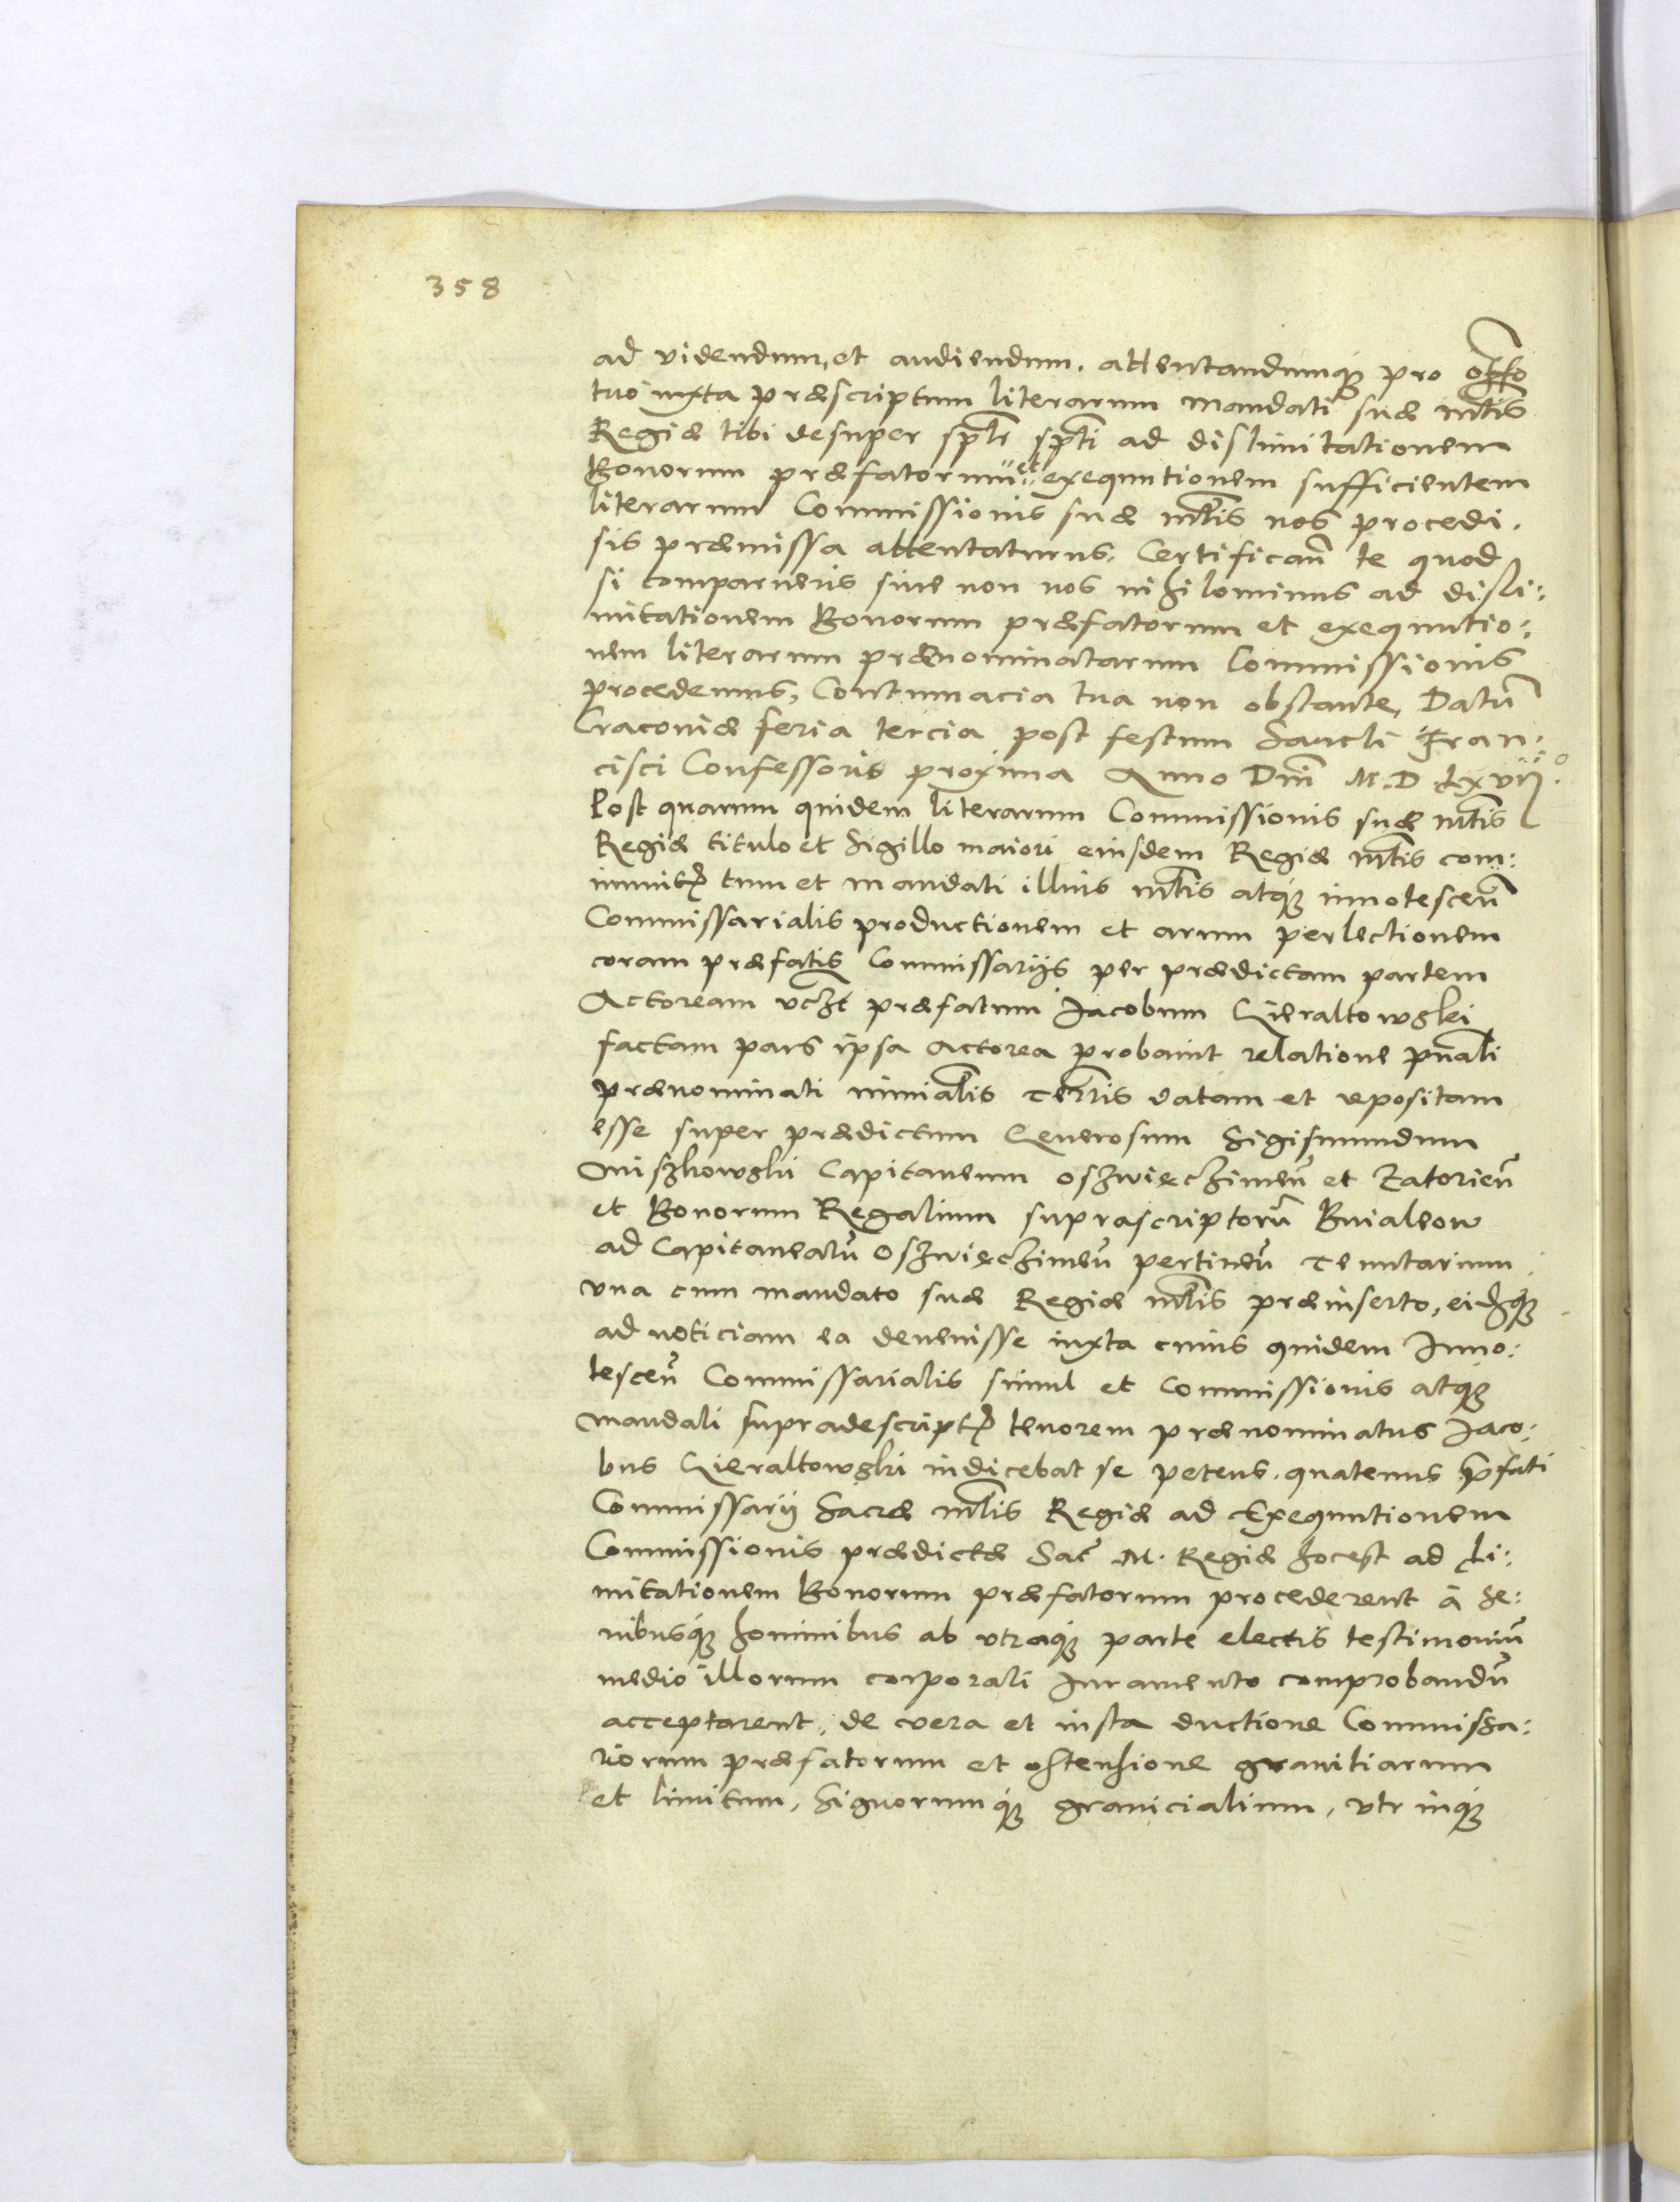 358
ad videndum, et audiendum. attentandumq́ꝫ pro offo
tuo iuxta præscriptum literarum mandati suæ mt͞is
Regiæ tibi desuper spl͞r sp͞ti ad dislimitationem
Bonorum præfatorum et exequutionem sufficientem
literarum Commissionis suæ mt͞is nos procedi.
sis præmissa attentaturus. Certifican̄ te quod
si comparueris siue non nos nihilominus ad disli:
mitationem Bonorum præfatorum et exequutio:
nem literarum prænominatarum Commissionis
procedemus, Contumacia tua non obstante, Datū
Cracoviæ feria tercia post festum Sancti Fran:
cisci Confessoris proxima Anno Dn̄i M.D Lxvii°.
Post quarum quidem literarum Commissionis suæ mt͞is
Regiæ titulo et Sigillo maiori eiusdem Regiæ mt͞is com:
munit͞ tum et mandati illius mt͞is atq́ꝫ innotescen̄
Commissarialis productionem et arum perlectionem
coram præfatis Commissarijs per prædictam partem
Actoream vcʒt præfatum Jacobum Gieraltowski
factam pars ipsa actorea probauit relatione pn̄ali
prænominati minialis Terr̄is datam et repositam
esse super prædictum Generosum Sigismundum
Miszkowski Capitaneum Oszwięczimen̄ et Zatorien̄
et Bonorum Regalium suprascriptorū Buialeow
ad Capitaneatū Oszwięczimen̄ pertinen̄ Tenutarium
vna cum mandato suæ Regiæ mt͞is præinserto, eidꝫq́ꝫ
ad noticiam ea deuenisse iuxta cuius quidem Inno:
tescen̄ Commissarialis simul et Commissionis atq́ꝫ
mandati supradescript͞ tenorem prænominatus Jaco:
bus Gieraltowski indicebat se petens. quatenus p̄fati
Commissarij Sacræ mt͞is Regiæ ad Exequutionem
Commissionis prædictæ Sac̄ M. Regiæ hocest ad Li:
mitationem Bonorum præfatorum procederent à Se:
nibusq́ꝫ hominibus ab vtraq́ꝫ parte electis testimoniū
medio illorum corporali Juramento comprobandū
acceptarent, de vera et iusta ductione Commissa:
riorum præfatorum et ostensione granitiarum
et limitum, Signorumq́ꝫ granicialium, vtrinq́ꝫ